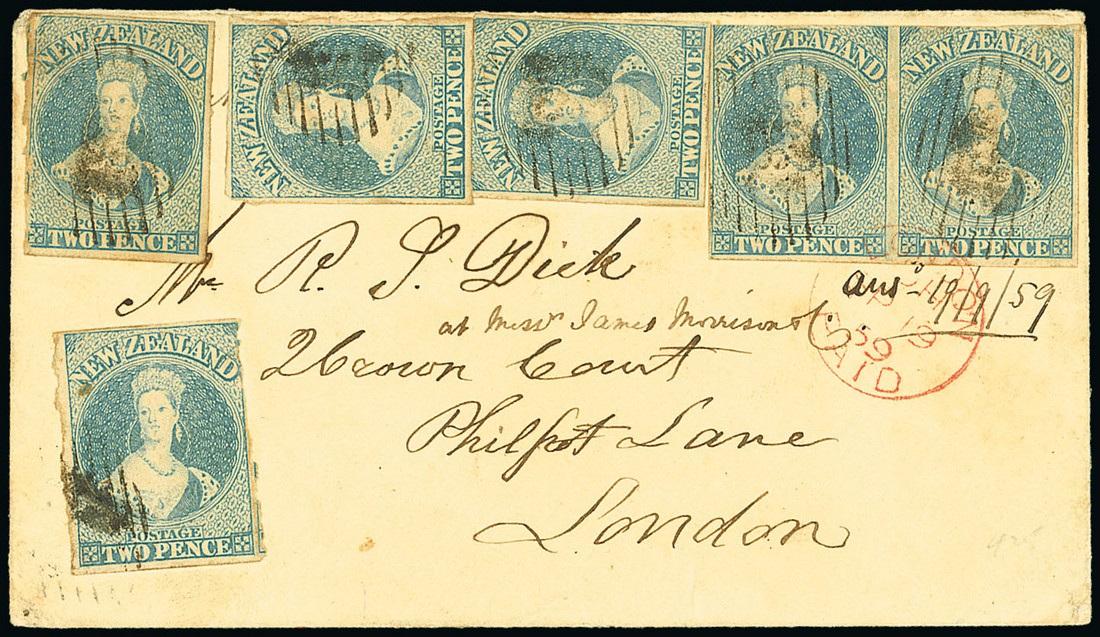 NEW ZEALAND
POSTAGE
TWO PENCE
NEW ZEALAND
POSTAGE
TWO PENCE
NEW ZEALAND
POSTAGE
TWO PENCE
NEW ZEALAND
POSTAGE
TWO PENCE
NEW ZEALAND
POSTAGE
TWO PENCE
Mr R. S. Dick
at Messrs James Morrison & Co
2 Crown Court
Philpot Lane
London
ansd 19/9/59
LONDON
59
PAID
NEW ZEALAND
POSTAGE
TWO PENCE